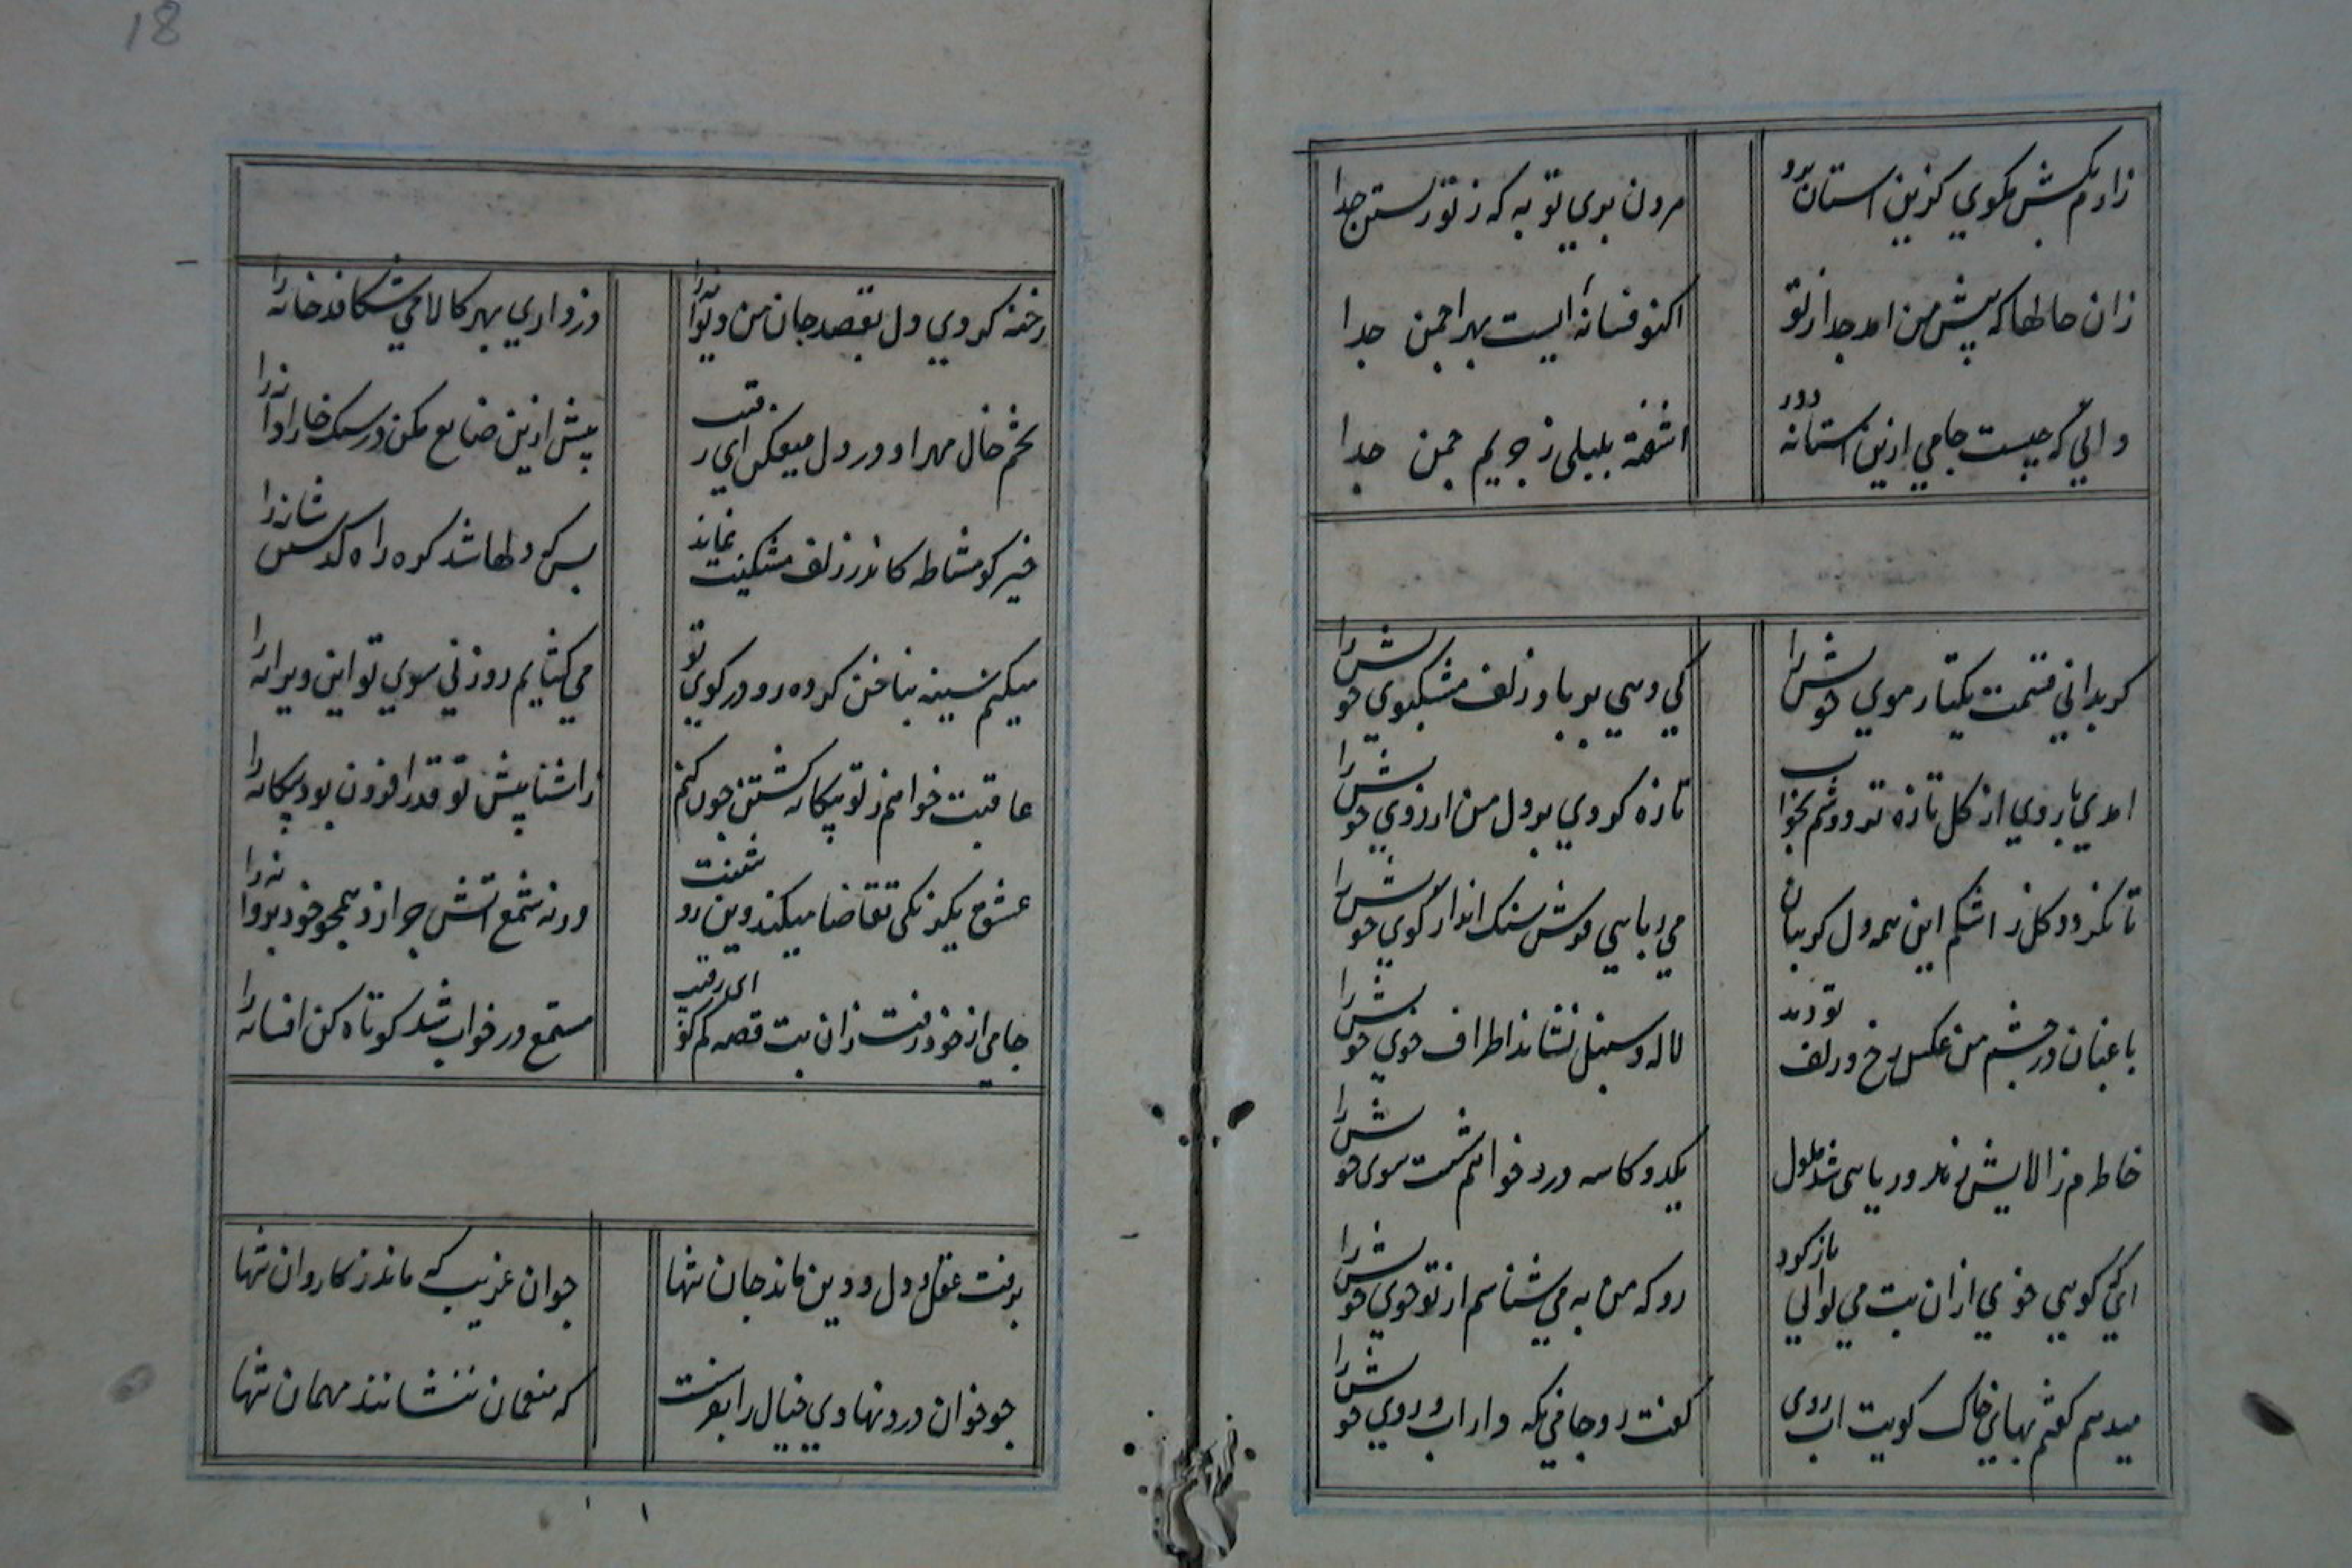 18
زارم بکش مکوي کزین استان برو
مردن بری تو به که ز تو زیستن جدا
زان حالها که پیش من امد جدا ز تو
اکنو فسانهٔ ایست بهر انجمن جدا
دانی که چیست جامي ازین استانه دور
اشفته بلبلی ز حریم چمن جدا
کر بدانی قیمت یکتار موي خویش را
کي دهي بر باد زلف مشکبوي خویش را
امدي با روي از کل تازه تر دوشم بخواب
تازه کردي بر دل من ارزوي خویش را
تا نکردد کل ز اشکم این همه دل کز بتان
مي ربایي فرش سنک انداز کوي خویش را
باغبان در چشم من عکس رخ و زلف تو دید
لاله و سنبل نشاند اطراف جوي خویش را
خاطرم ز الایش زهد ریایی شد ملول
یکدو کاسه درد خواهم شست شوی خویش را
ایکه کویي خوي ازان بت مي توانی باز کرد
رو که من به مي شناسم از تو خوي خویش را
میدهم کفتم بهای خاک کویت اب روی
کفت رو جامي نکه دار اب روي خویش را
رخنه کردي دل بقصد جان من دیوانه را
دزد اري بهر کالا مي شکافد خانه را
تخم خال مهر او در دل میفکن اي رقیب
پیش ازین ضایع مکن در سنک خارا دانه را
خیر کو مشاطه کاندر زلف مشکینت نماند
بس که دلها شد کره راه کذشتن شانه را
میکنم سینه بناخن کرده رو در کوي تو
مي کشایم روزني سوي تو این ویرانه را
عاقبت خواهم ز تو بیکانه کشتن چون کنم
ز اشنا پیش تو قدر افزون بود بیکانه را
عشق یکرنکی تقاضا میکند وین رو شنست
ورنه شمع اتش چرا زد همچو خود پروانه را
جامي از خود رفت زان بت قصه کم کو ای رقیب
مستمع در خواب شد کوتاه کن افسانه را
برفت عقل و دل و دین ماند جان تنها
جوان غریب که ماند ز کاروان تنها
جو خوان درد نهادي خیال را بفرست
که منعمان ننشانند مهمان تنها